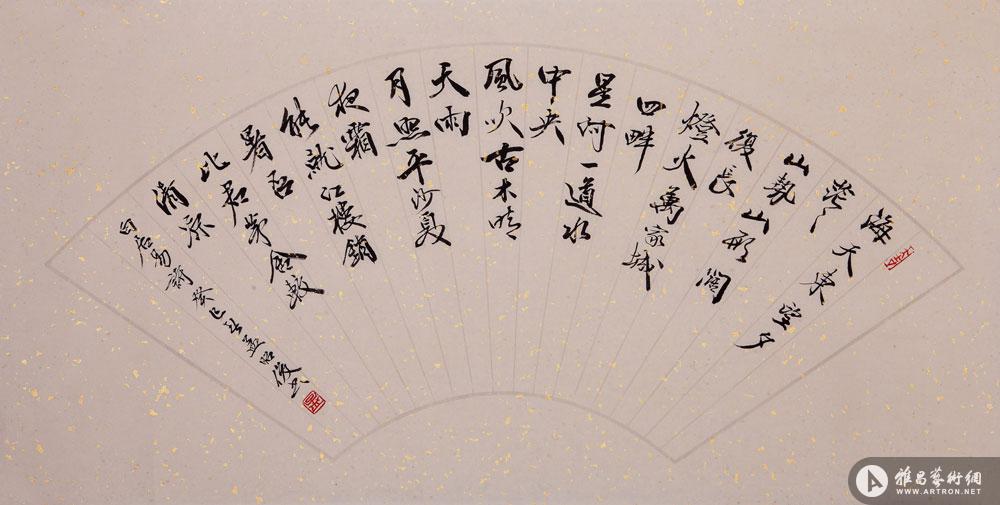 海天東望夕
茫々
山勢山形闊
復長
燈火萬家城
四畔
星河一道水
中央
風吹古木晴
天雨
月照平沙夏
夜霜
能就江樓銷
暑否
比君茅舍較
清涼
白居易詩 癸巳 孟昭俊書
雅昌藝術網
WWW.ARTRON.NET